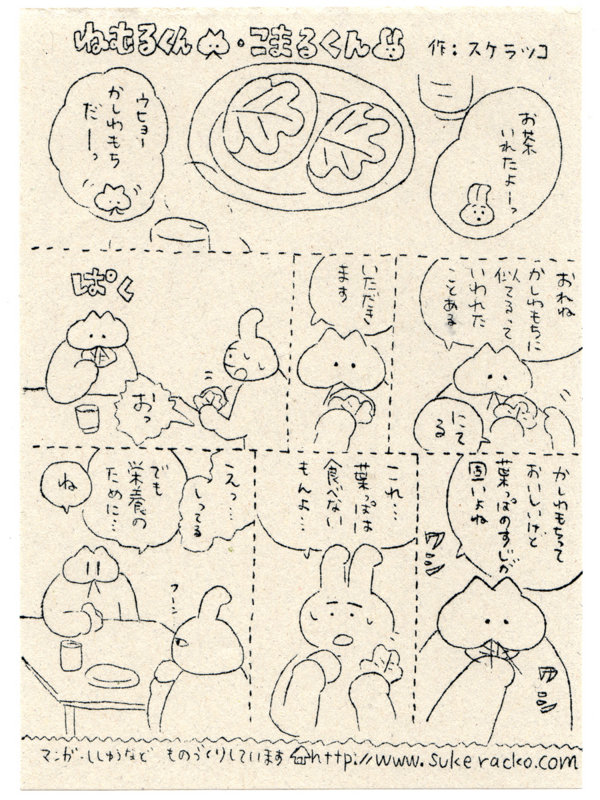 ねむるくん・こまるくん 作:スケラッコ
お茶
いれたよーっ
ウヒョー
かしわもち
だーーっ
おれね
かしわもちに
似てるって
いわれた
ことある
にて
る
いただき
ます
ぱく
おっ
かしわもちって
おいしいけど
葉っぱのすじが
固いよね
ワシ
ワシ
これ…
葉っぱは
食べない
もんよ…
えっ…
しってる
でも
栄養の
ために…
ね
フーン
マンガ・ししゅうなど ものづくりしています http://www.sukeracko.com